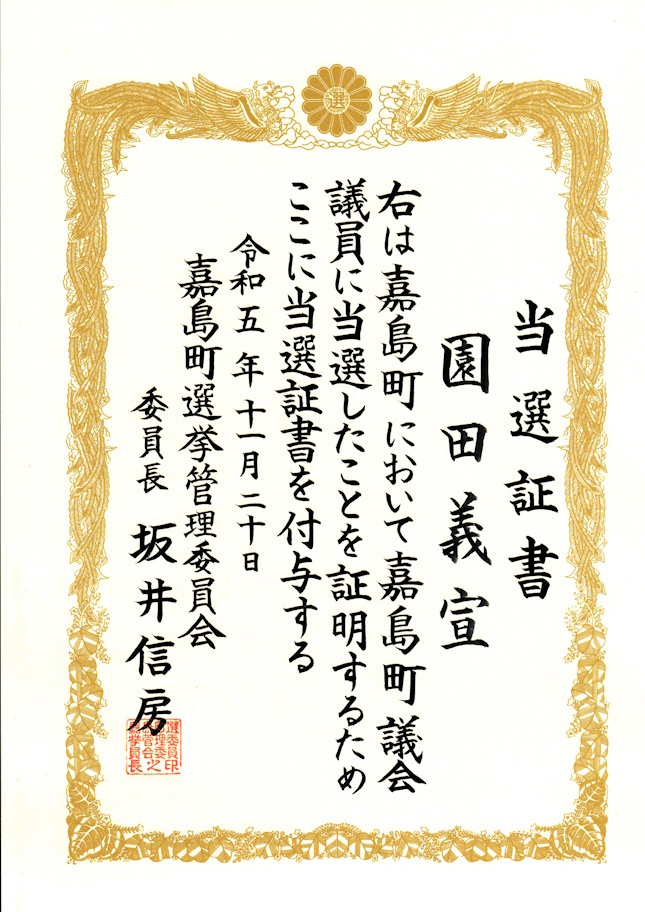 当選証書
園田義宣
右は嘉島町において嘉島町議会
議員に当選したことを証明するため
ここに当選証書を付与する
令和五年十一月二十日
嘉島町選挙管理委員会
委員長 坂井信房
選